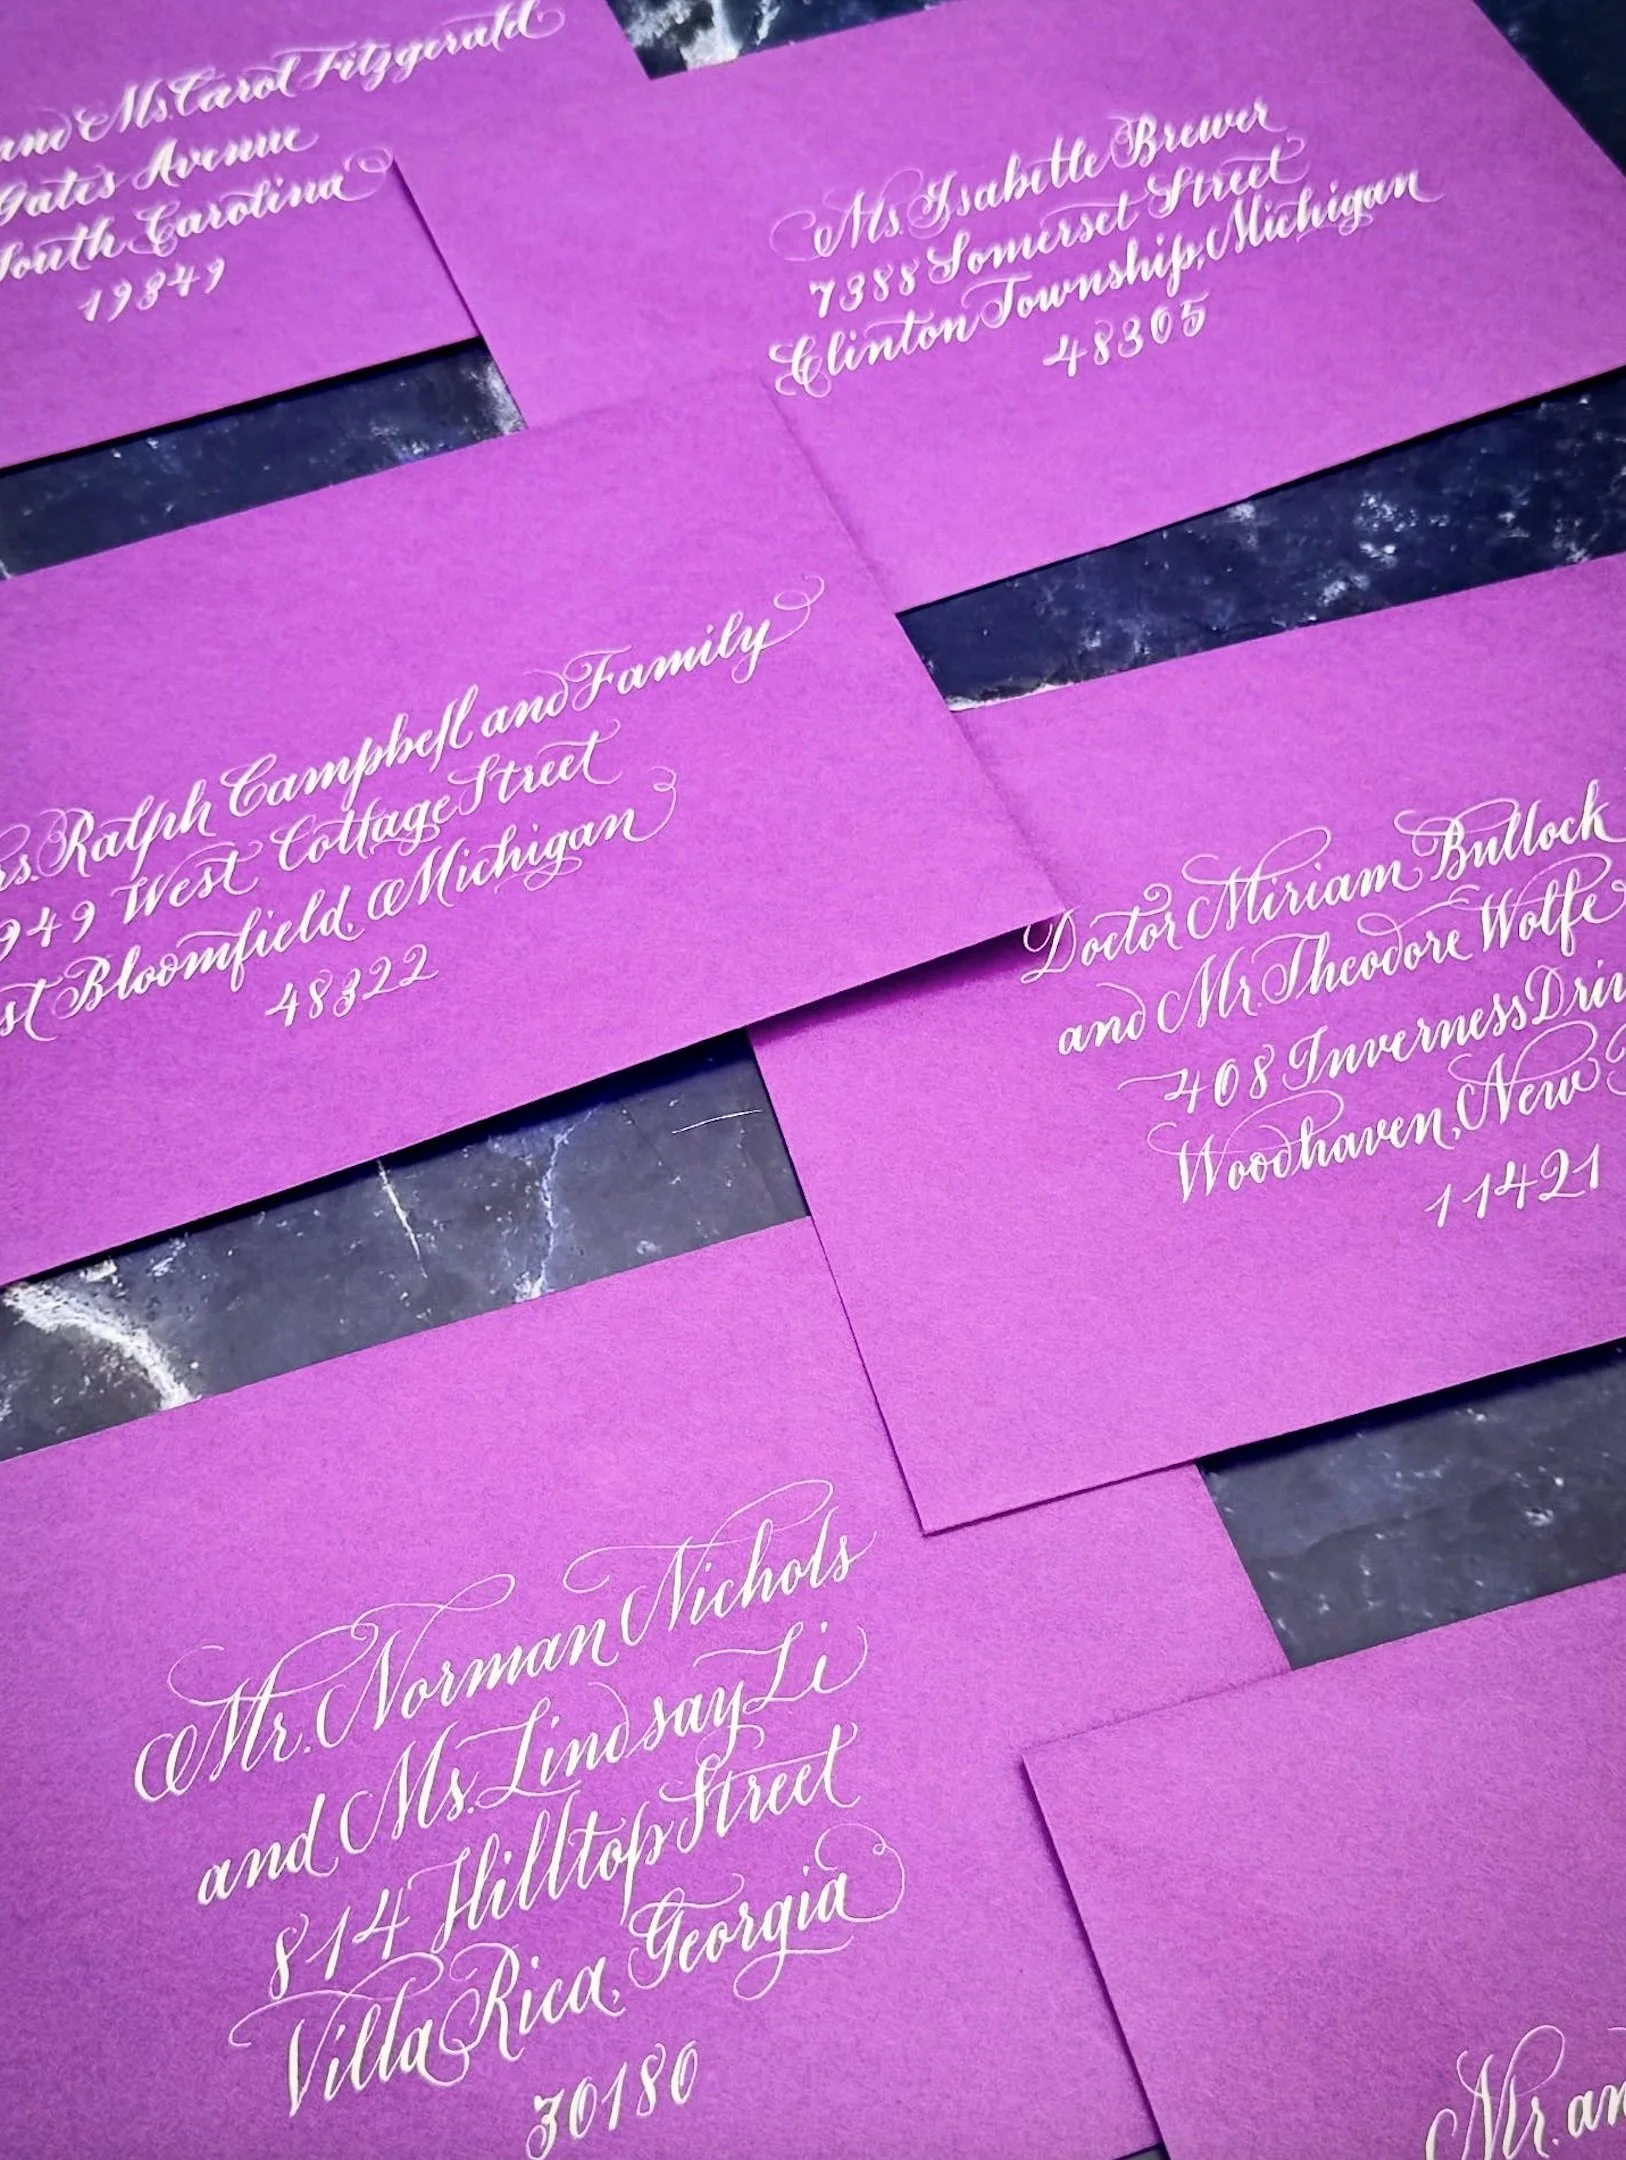 and Ms. Carol Fitzgerald
Gates Avenue
South Carolina
19849
Ms. Isabelle Brewer
7388 Somerset Street
Clinton Township, Michigan
48305
Ralph Campbell and Family
949 West Cottage Street
Bloomfield, Michigan
48322
Doctor Miriam Bullock
and Mr. Theodore Wolfe
408 Inverness Driv
Woodhaven, New
11421
Mr. Norman Nichols
and Ms. Lindsay Li
814 Hilltop Street
Villa Rica, Georgia
30180
Mr. an